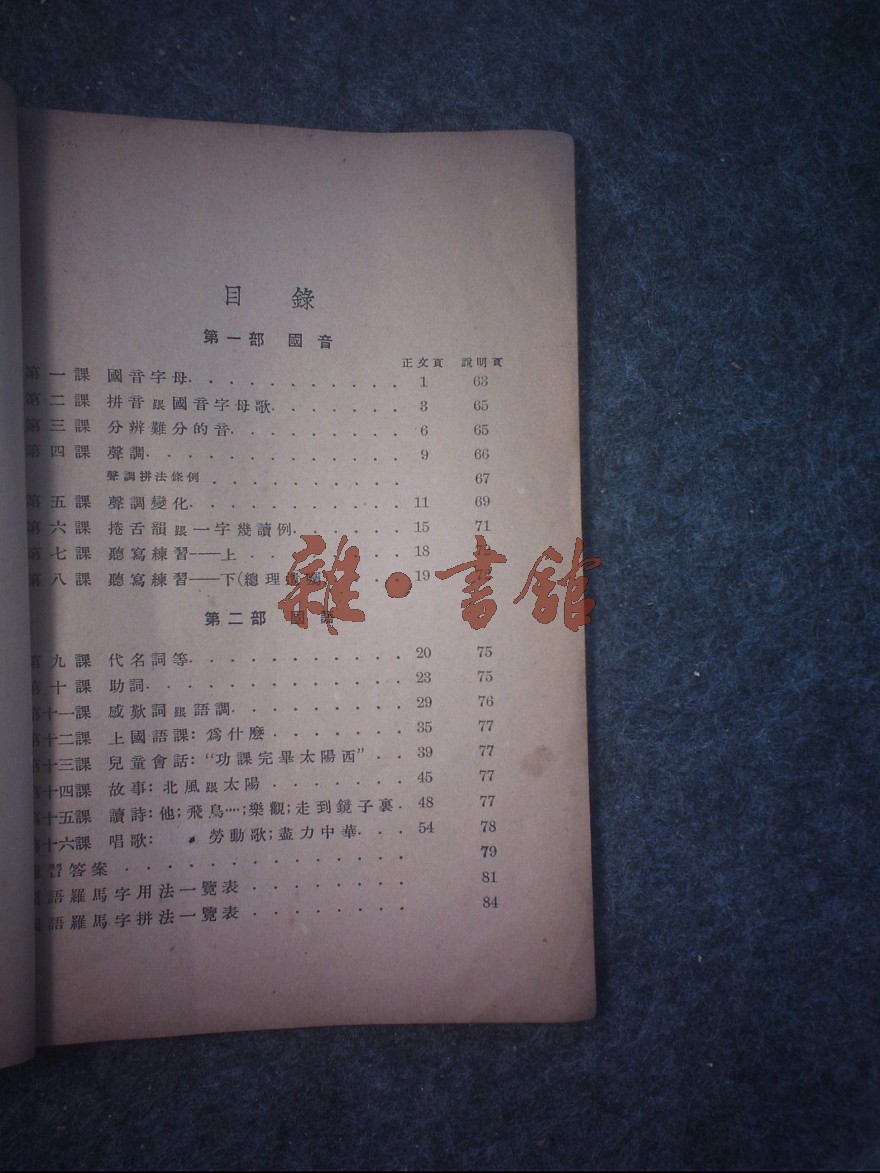 目錄
第一部 國音
正文頁 說明頁
第一課 國音字母 1 63
第二課 拼音跟國音字母歌 3 65
第三課 分辨難分的音 6 65
第四課 聲調 9 66
聲調拼法條例 67
第五課 聲調變化 11 69
第六課 捲舌韻跟一字幾讀例 15 71
第七課 聽寫練習——上 18
第八課 聽寫練習——下(總理 19
雜·書館
第二部 國語
第九課 代名詞等 20 75
第十課 助詞 23 75
第十一課 感歎詞跟語調 29 76
第十二課 上國語課:爲什麼 35 77
第十三課 兒童會話:“功課完畢太陽西” 39 77
第十四課 故事:北風跟太陽 45 77
第十五課 讀詩:他;飛鳥…;樂觀;走到鏡子裏 48 77
第十六課 唱歌: 勞動歌;盡力中華 54 78
習答案 79
語羅馬字用法一覽表 81
語羅馬字拼法一覽表 84